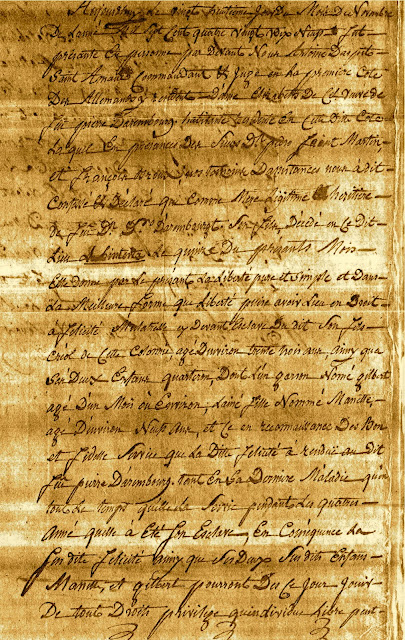 Aujourdhuy Le Vingt huitieme Jour du Mois De Novembre
De Lanné Mil Sept Cent quatre Vingt Dix Neuf fut
présente En personne par Devant Nous Antoine Daspit
Saint Amand Commandant & Juge en La première Cote
Des Allemands y résidant Dame Elisabeth De Vuve de
Fû pierre Darembourg habitante residant En Cette Dite Cote
Laquelle En présances Des Sieurs Martin
et François temoins Dassistances nous a dit
Confessé & Déclaré que Comme Mere Légitime & héritière
de Feu Sr Darembourg Son fils, Décédé en Ce dit
Lieu Le quinze Du présant Mois
Elle donne par Le présant La Liberté pure et Simple et Dans
La Meilleure Forme que Liberté puisse avoir Lieu en Droit
a Félicité Mulatresse cy Devant Esclave Du dit Son fils
Criol de Cette Colonie agé Danviron trente trois ans ainsy que
Ses Deux Enfans quarteron, Dont L'un garson Nomé gilbert
agé D'un Mois ou Environ, Lainé fille Nommé Manette,
agé Danviron Neuf Ans, et Ce en reconnaissance Des Bon
et Fidele Service que La Ditte Félicité a rendue au dit
Fû pierre Darembourg tant En La Derniere Maladie quen
tout Le temps quelle La Servie pendant Les quatres
Anné quelle a Eté Son Esclave, En Conséquence La
Susdite Félicité ainsy que Ses Deux Susdits Enfans
Manette, et gilbert pourront Des Ce Jour Jouir
De tout Droits privilege quindividue Libre peut